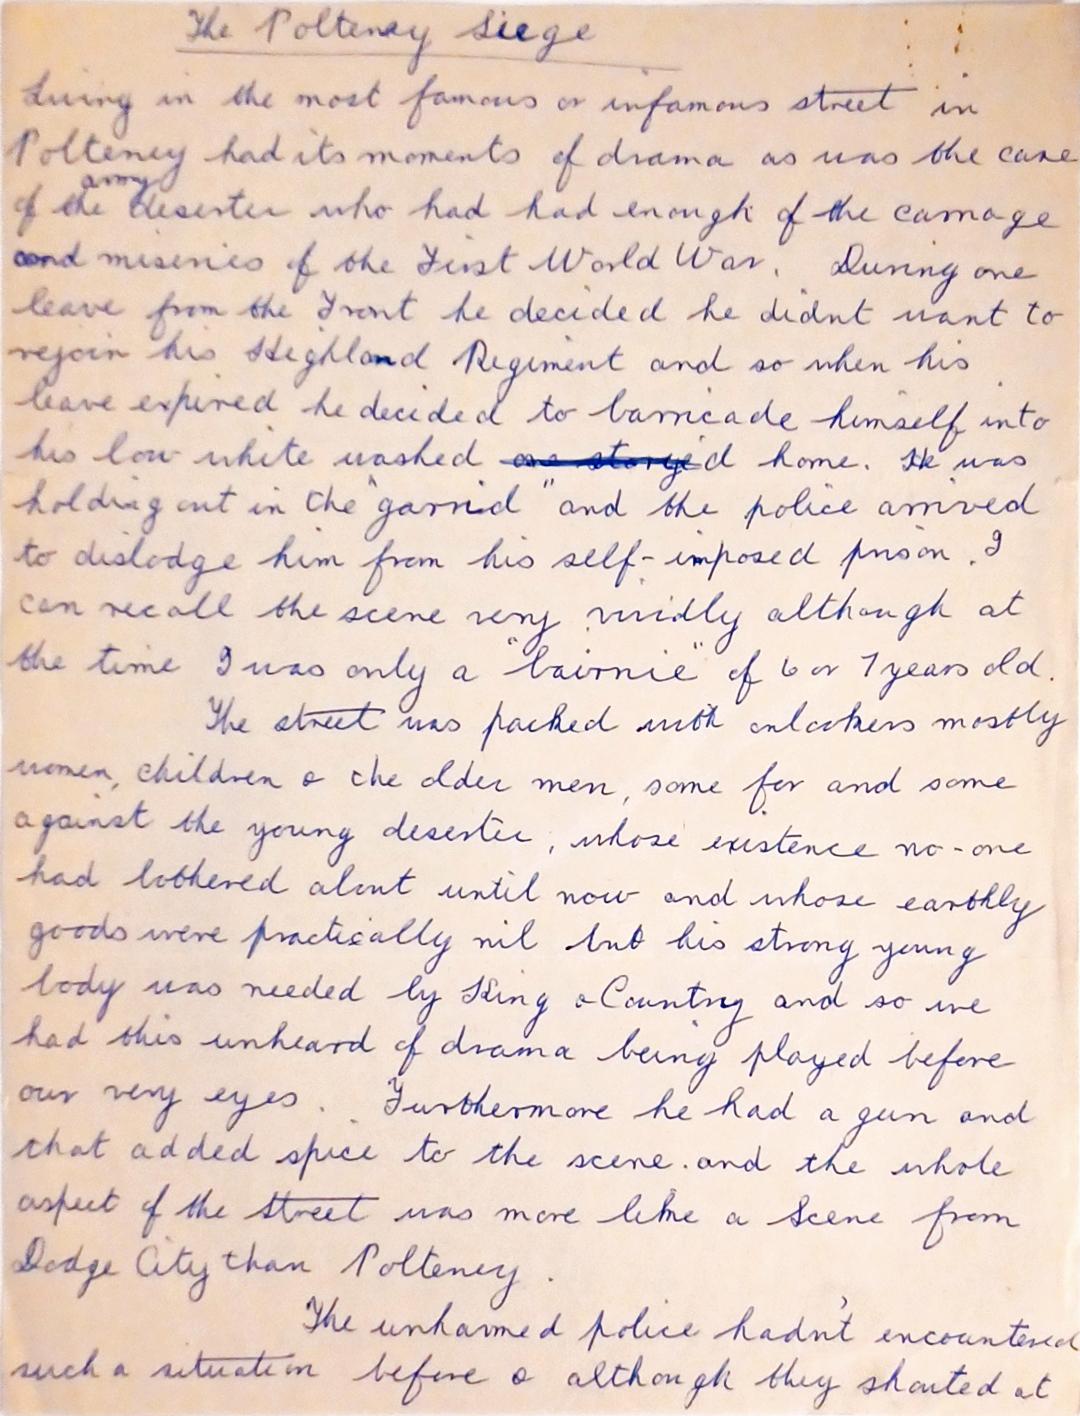 The Polteney Siege
Living in the most famous or infamous street in
Polteney had its moments of drama as was the case
army
of the deserter who had had enough of the carnage
and miseries of the First World War. During one
leave from the Front he decided he didnt want to
rejoin his Highland Regiment and so when his
leave expired he decided to barricade himself into
his low white washed one storyed home. He was
holding out in the "garrid" and the police arrived
to dislodge him from his self-imposed prison. I
can recall the scene very vividly although at
the time I was only a "bairnie" of 6 or 7 years old.
The street was packed with onlookers mostly
women, children & the older men, some for and some
against the young deserter, whose existence no-one
had bothered about until now and whose earthly
goods were practically nil but his strong young
body was needed by King & Country and so we
had this unheard of drama being played before
our very eyes. Furthermore he had a gun and
that added spice to the scene. and the whole
aspect of the street was more like a scene from
Dodge City than Polteney.
The unharmed police hadn't encountered
such a situation before & although they shouted at